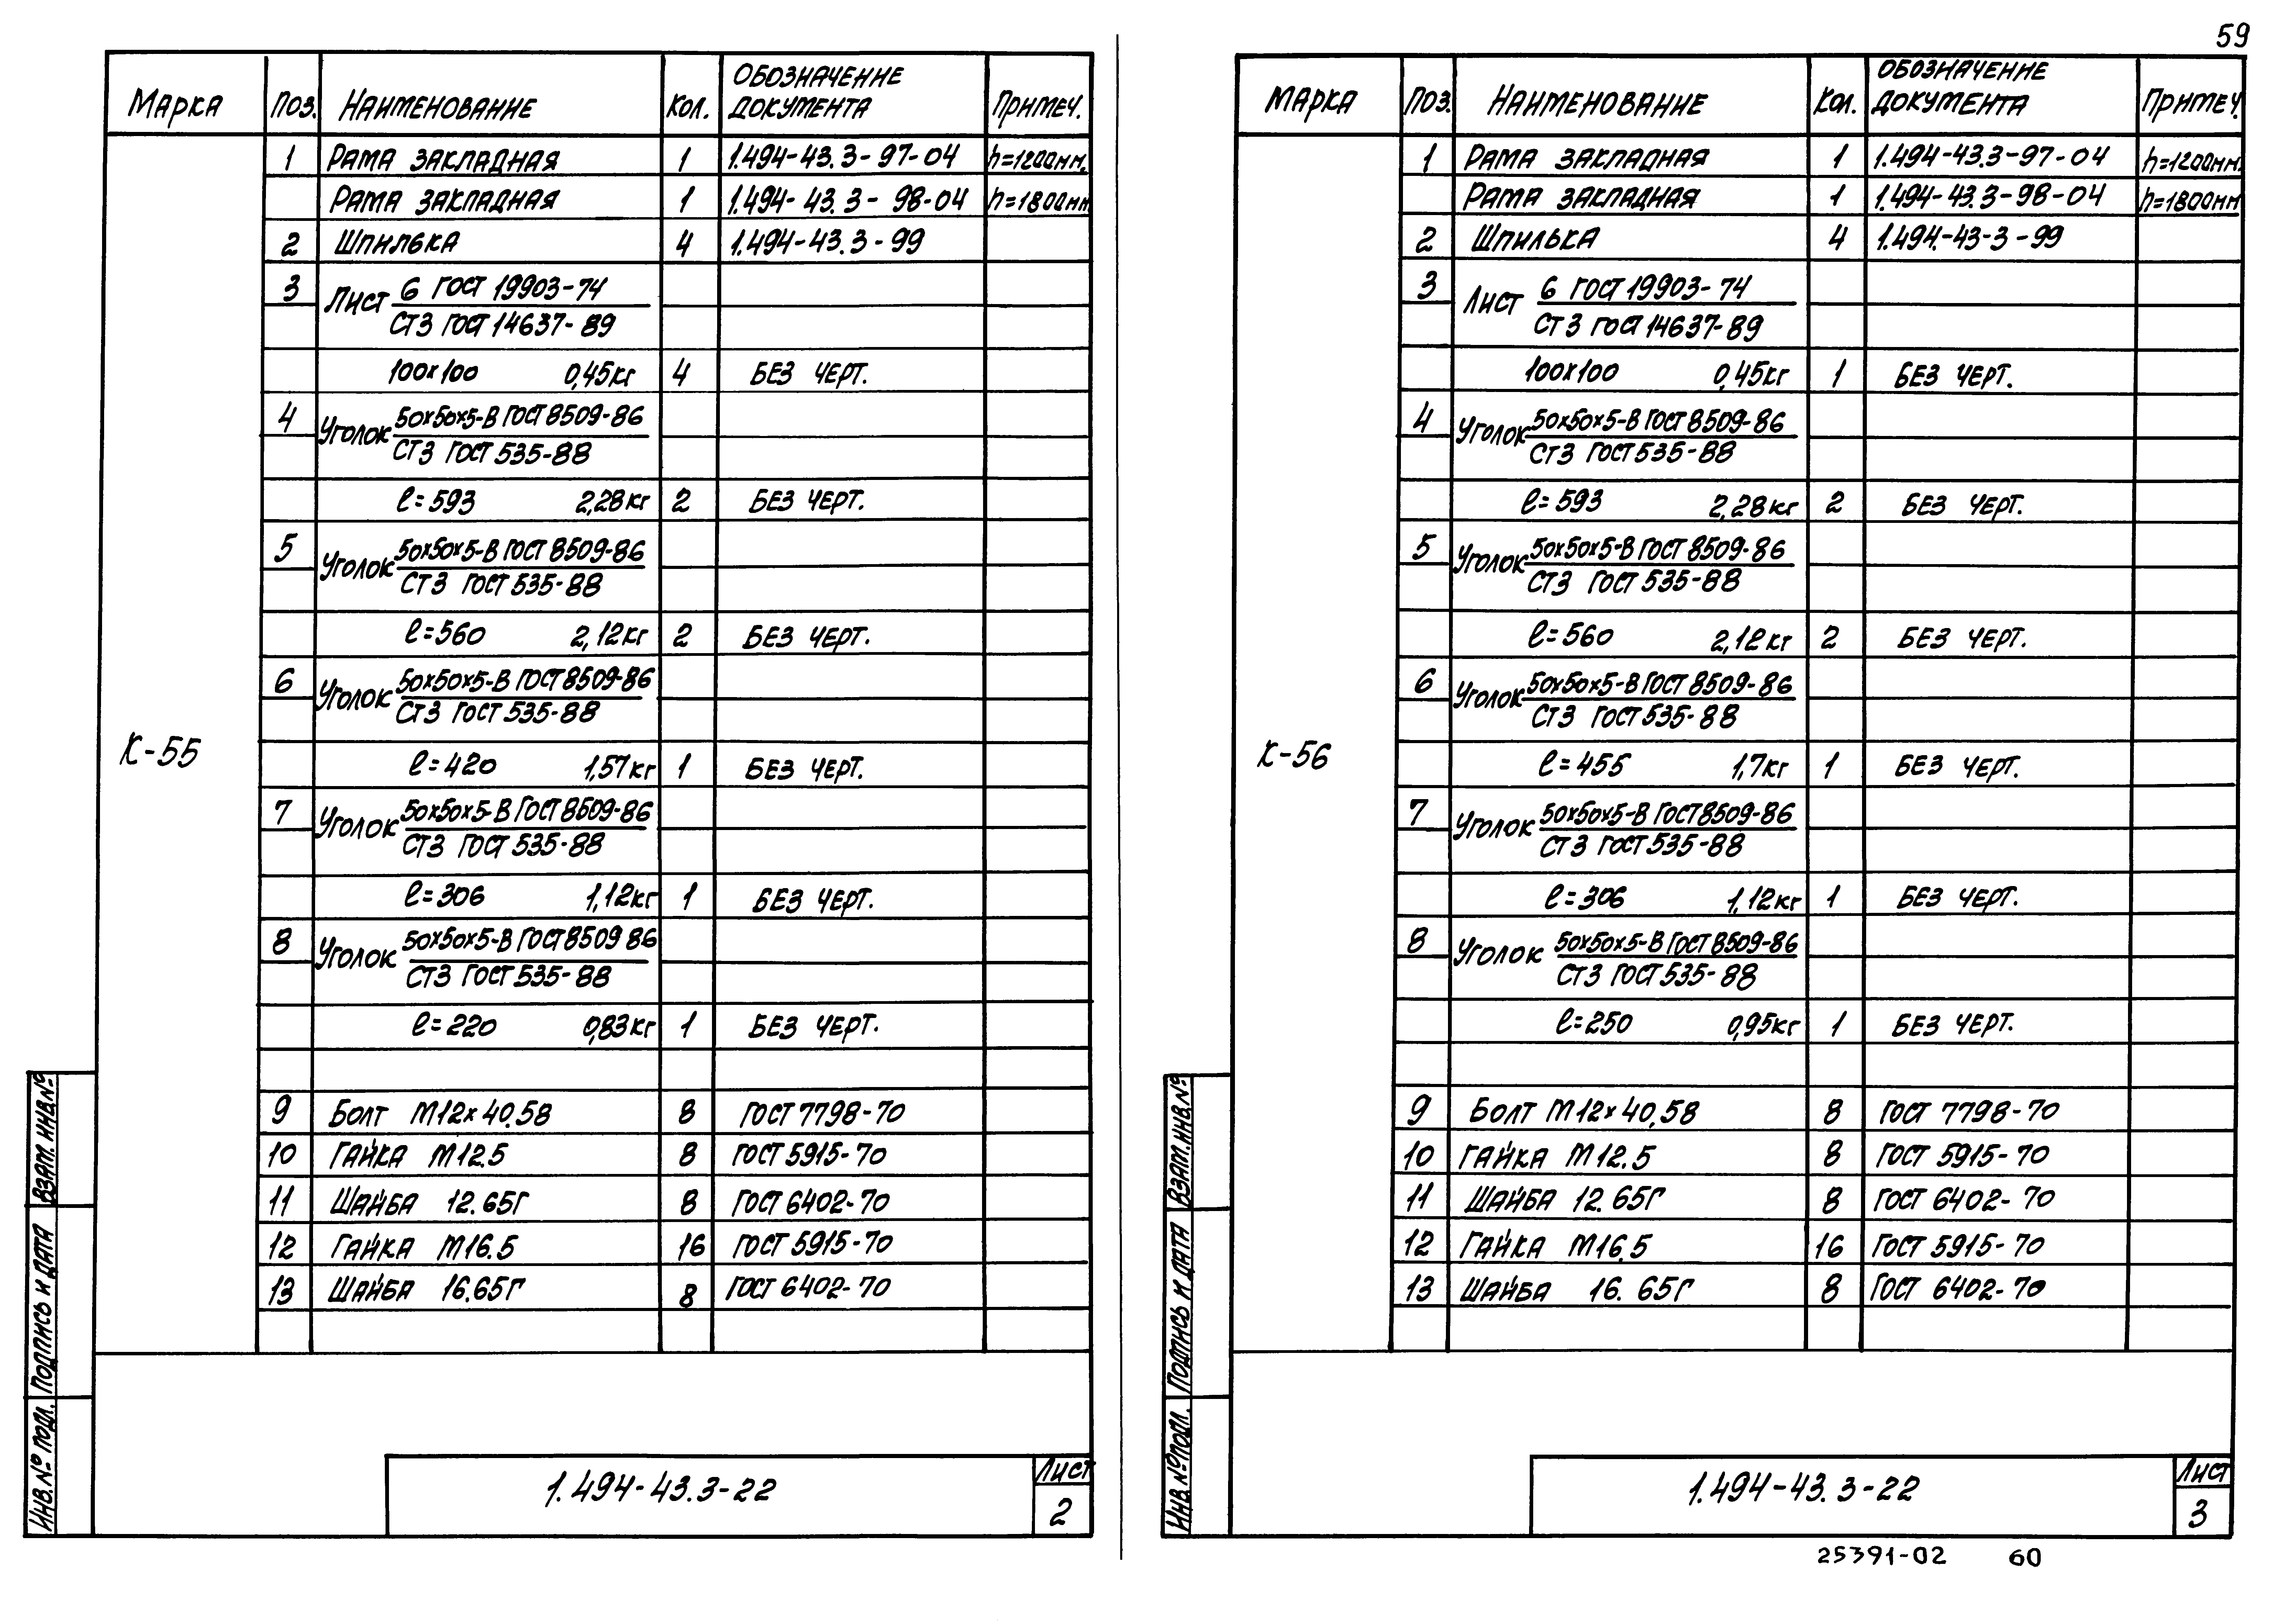 59
Марка Поз. Наименование Кол. Обозначение документа Примеч.
К-55
1 Рама закладная 1 1.494-43.3-97-04 h=1200мм.
Рама закладная 1 1.494-43.3-98-04 h=1800мм
2 Шпилька 4 1.494-43.3-99
3 Лист 6 ГОСТ 19903-74
Ст3 ГОСТ 14637-89
100х100 0,45кг 4 Без черт.
4 Уголок 50х50х5-В ГОСТ 8509-86
Ст3 ГОСТ 535-88
ℓ=593 2,28кг 2 Без черт.
5 Уголок 50х50х5-В ГОСТ 8509-86
Ст3 ГОСТ 535-88
ℓ=560 2,12кг 2 Без черт.
6 Уголок 50х50х5-В ГОСТ 8509-86
Ст3 ГОСТ 535-88
ℓ=420 1,57кг 1 Без черт.
7 Уголок 50х50х5-В ГОСТ 8509-86
Ст3 ГОСТ 535-88
ℓ=306 1,12кг 1 Без черт.
8 Уголок 50х50х5-В ГОСТ 8509 86
Ст3 ГОСТ 535-88
ℓ=220 0,83кг 1 Без черт.
9 Болт М12х40.58 8 ГОСТ 7798-70
10 Гайка М12.5 8 ГОСТ 5915-70
11 Шайба 12.65Г 8 ГОСТ 6402-70
12 Гайка М16.5 16 ГОСТ 5915-70
13 Шайба 16.65Г 8 ГОСТ 6402-70
Инв.№ подл. Подпись и дата Взам.инв.№
1.494-43.3-22
Лист
2
Марка Поз. Наименование Кол. Обозначение документа Примеч.
К-56
1 Рама закладная 1 1.494-43.3-97-04 h=1200мм.
Рама закладная 1 1.494-43.3-98-04 h=1800мм
2 Шпилька 4 1.494-43-3-99
3 Лист 6 ГОСТ 19903-74
Ст3 ГОСТ 14637-89
100х100 0,45кг 1 Без черт.
4 Уголок 50х50х5-В ГОСТ 8509-86
Ст3 ГОСТ 535-88
ℓ=593 2,28кг 2 Без черт.
5 Уголок 50х50х5-В ГОСТ 8509-86
Ст3 ГОСТ 535-88
ℓ=560 2,12кг 2 Без черт.
6 Уголок 50х50х5-В ГОСТ 8509-86
Ст3 ГОСТ 535-88
ℓ=455 1,7кг 1 Без черт.
7 Уголок 50х50х5-В ГОСТ 8509-86
Ст3 ГОСТ 535-88
ℓ=306 1,12кг 1 Без черт.
8 Уголок 50х50х5-В ГОСТ 8509-86
Ст3 ГОСТ 535-88
ℓ=250 0,95кг 1 Без черт.
9 Болт М12х40.58 8 ГОСТ 7798-70
10 Гайка М12.5 8 ГОСТ 5915-70
11 Шайба 12.65Г 8 ГОСТ 6402-70
12 Гайка М16.5 16 ГОСТ 5915-70
13 Шайба 16.65Г 8 ГОСТ 6402-70
Инв.№ подл. Подпись и дата Взам.инв.№
1.494-43.3-22
Лист
3
25391-02 60